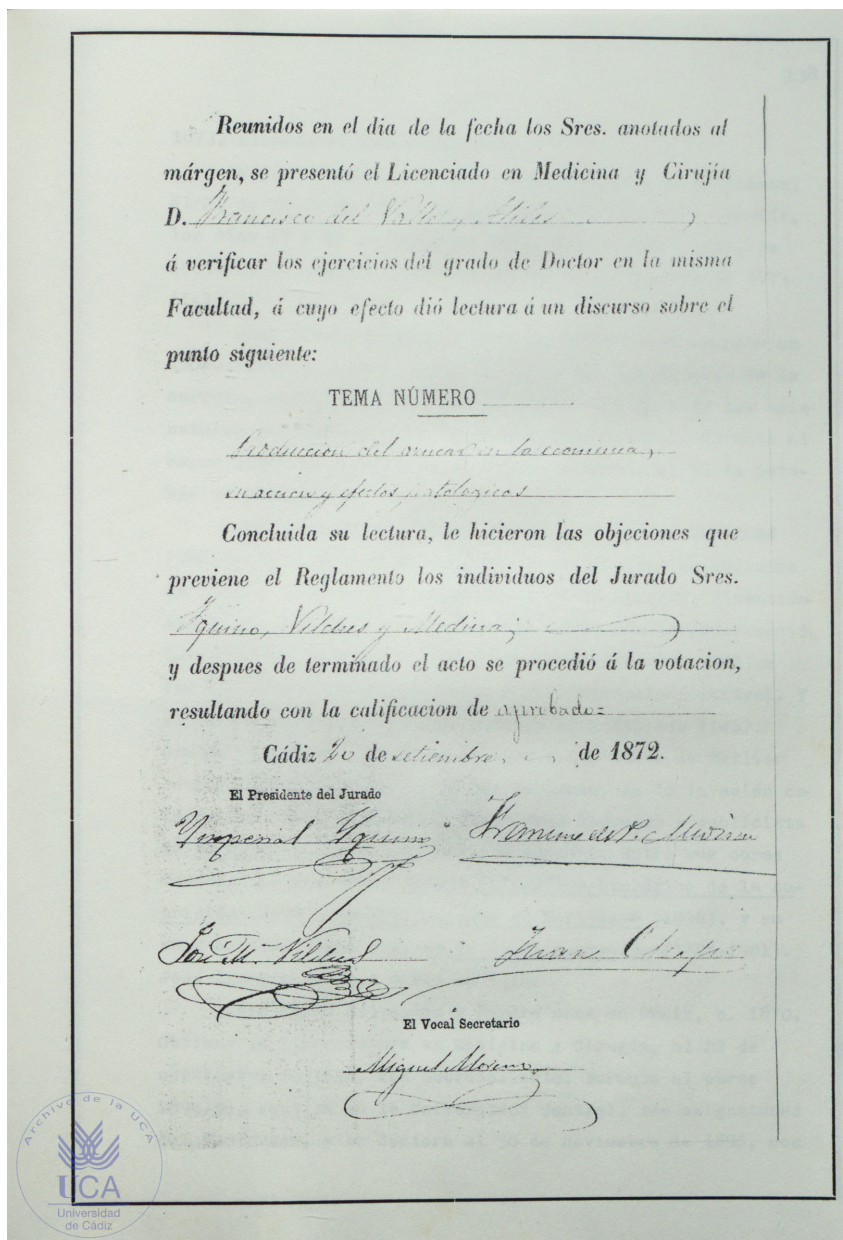 Reunidos en el dia de la fecha los Sres. anotados al
márgen, se presentó el Licenciado en Medicina y Cirujía
D. Francisco del Valle y Atiles
á verificar los ejercicios del grado de Doctor en la misma
Facultad, á cuyo efecto dió lectura á un discurso sobre el
punto siguiente:
TEMA NÚMERO
Produccion del azucar en la economia,
su accion y efectos patologicos
Concluida su lectura, le hicieron las objeciones que
previene el Reglamento los individuos del Jurado Sres.
Yquino, Vilches y Medina;
y despues de terminado el acto se procedió á la votacion,
resultando con la calificacion de aprobado=
Cádiz 20 de setiembre de 1872.
El Presidente del Jurado
Ymperial Yquino Francisco de P. Medina
José Mª Vilches Juan
El Vocal Secretario
Miguel Moreno
Archivo de la UCA
UCA
Universidad
de Cádiz